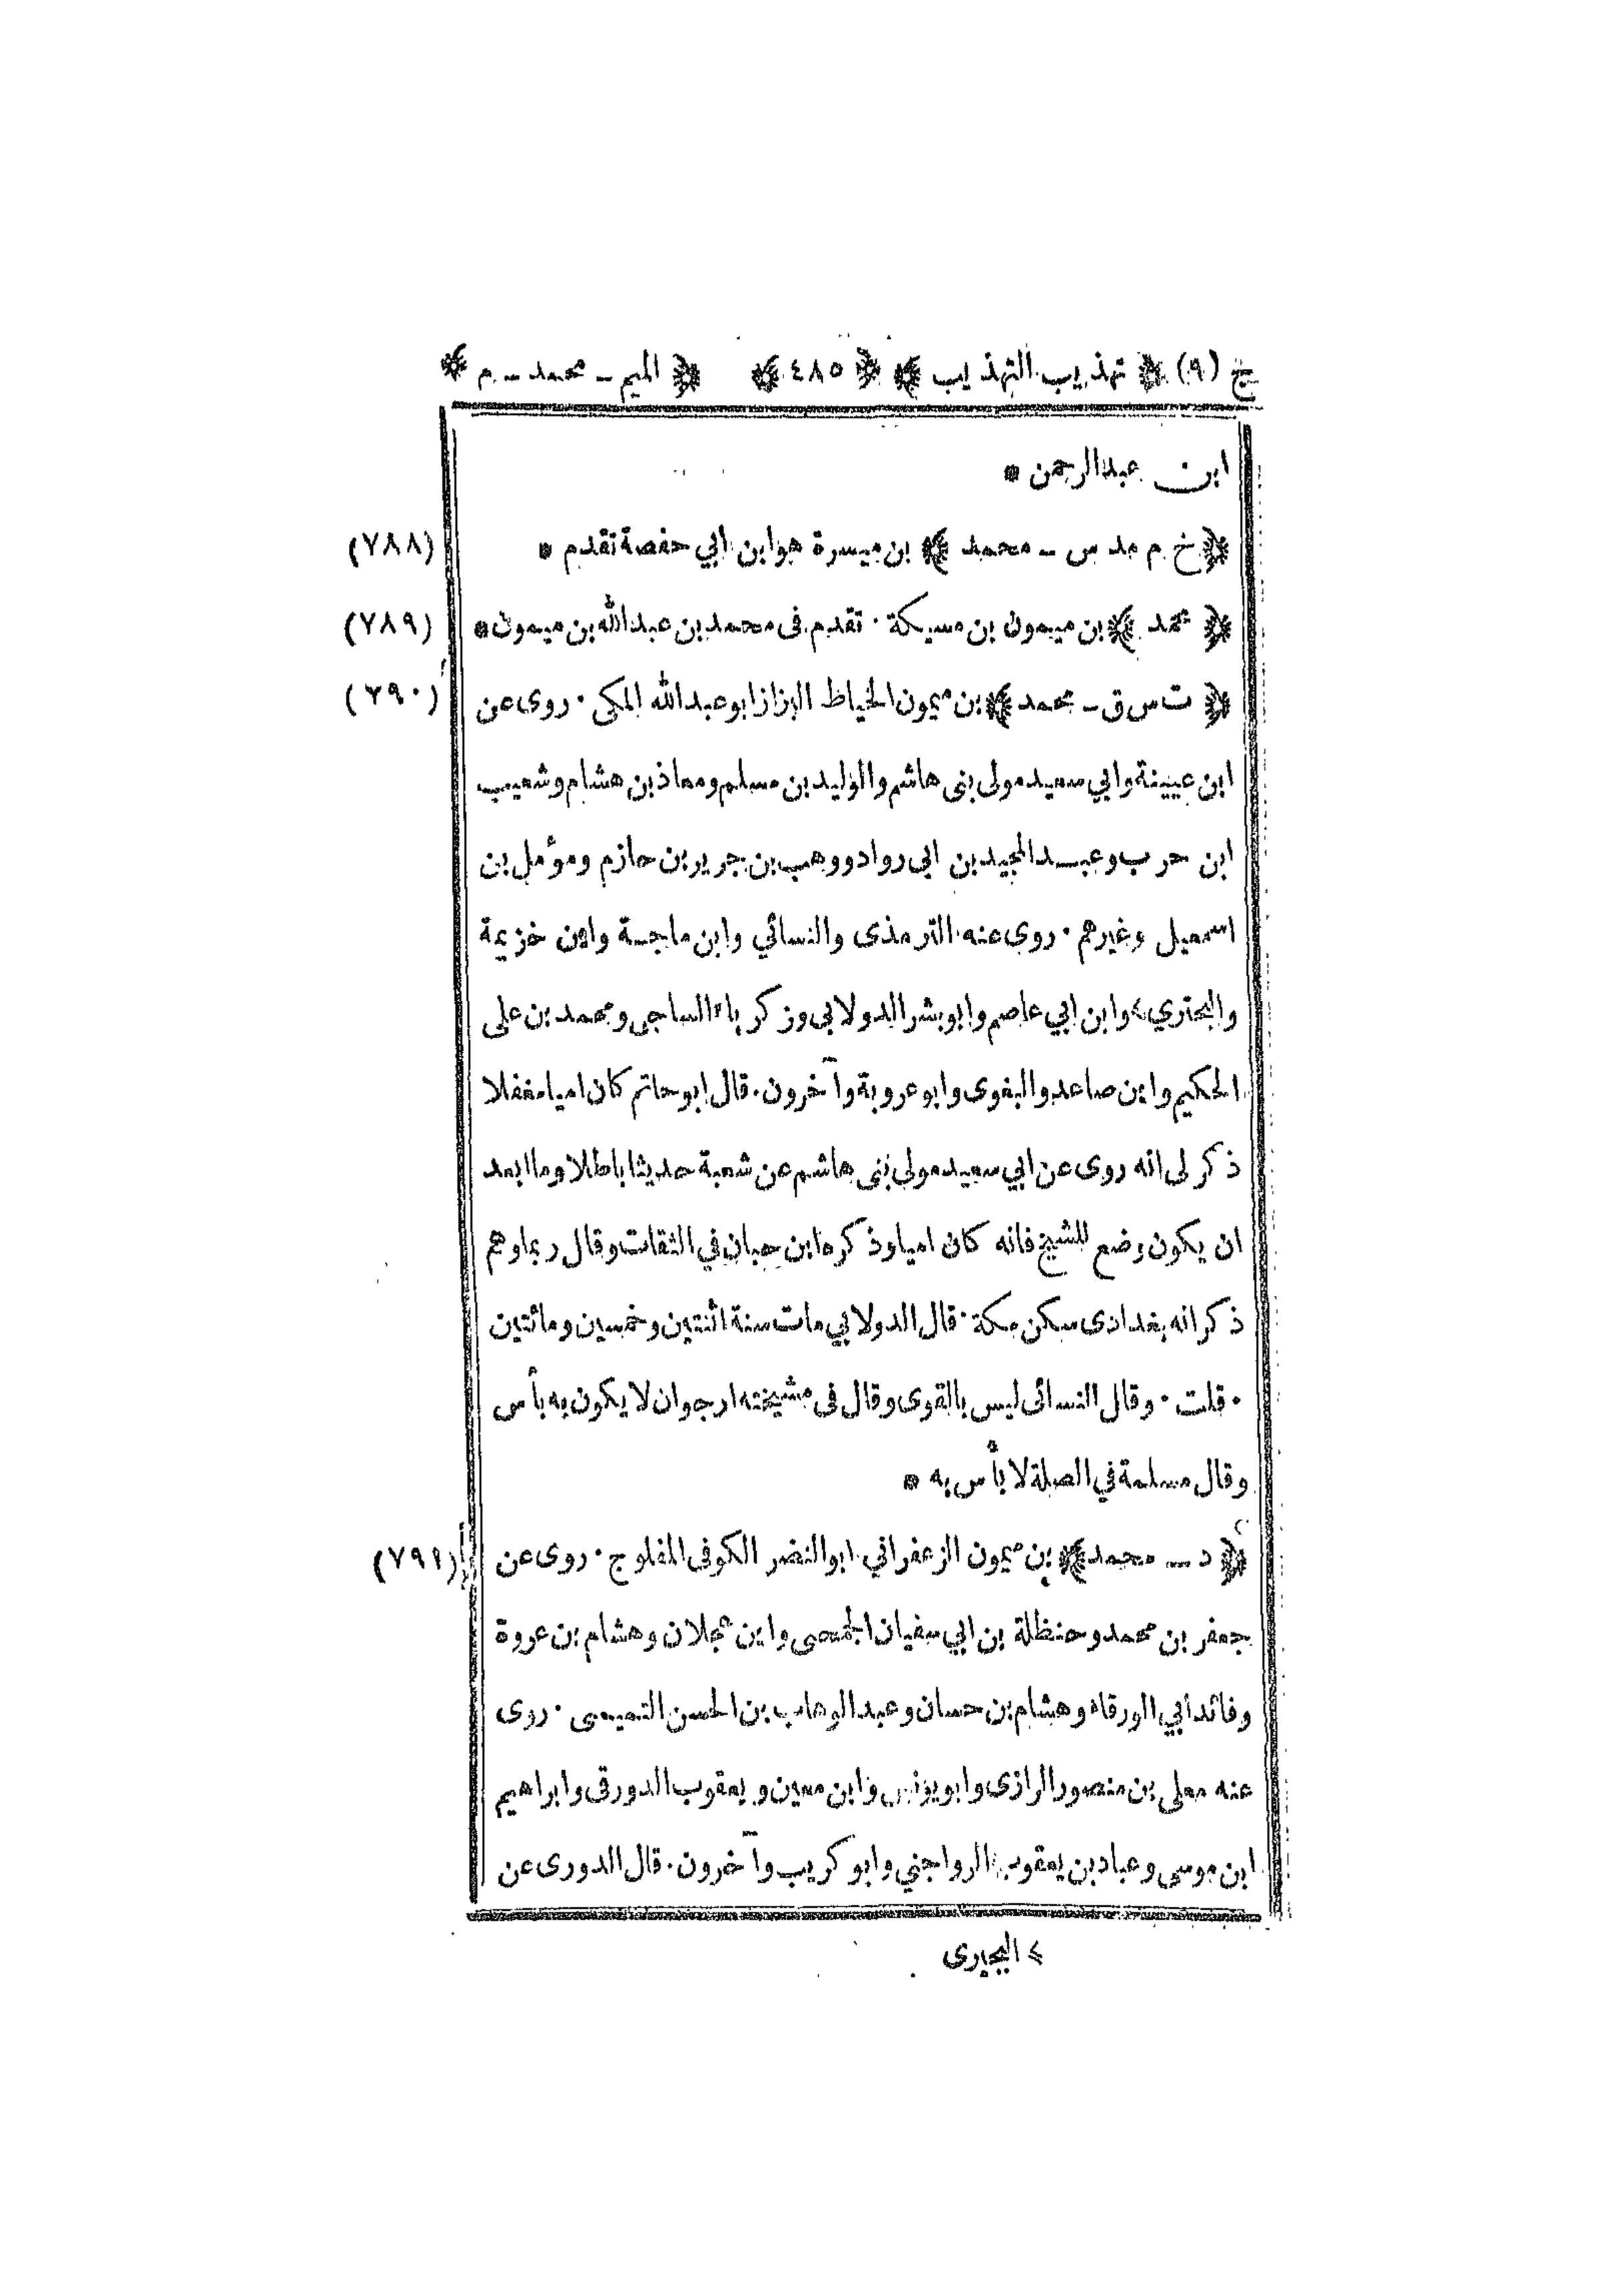 ج (٩) ﴿ تهذيب التهذيب ﴾ ﴿ ٤٨٥ ﴾ ﴿ الميم ـ محمد ـ م ﴾
ابن عبدالرحمن *
﴿ خ م مد س ـ محمد ﴾ بن ميسرة هو ابن ابي حفصة تقدم * (٧٨٨)
﴿ محمد ﴾ بن ميمون بن مسيكة · تقدم فى محمد بن عبدالله بن ميمون * (٧٨٩)
﴿ ت س ق ـ محمد ﴾ بن ميمون الخياط البزاز ابو عبدالله المكى · روى عن (٧٩٠)
ابن عيينة وابي سعيد مولى بنى هاشم والوليد بن مسلم ومعاذ بن هشام وشعيب
ابن حرب وعبد المجيد بن ابى رواد ووهب بن جرير بن حازم ومؤمل بن
اسمعيل وغيرهم · روى عنه الترمذى والنسائي وابن ماجة وابن خزيمة
والبحتري > وابن ابي عاصم وابو بشر الدولابى وزكرياء الساجى ومحمد بن على
الحكيم وابن صاعد والبغوى وابو عروبة وآخرون · قال ابو حاتم كان اميا مغفلا
ذكر لى انه روى عن ابي سعيد مولى بنى هاشم عن شعبة حديثا باطلا وما ابعد
ان يكون وضع للشيخ فانه كان اميا وذكره ابن حبان في الثقات وقال ربما وهم
ذكر انه بغدادى سكن مكة · قال الدولابي مات سنة اثنتين وخمسين ومائتين
· قلت · وقال النسائى ليس بالقوى وقال فى مشيخته ارجو ان لا يكون به بأس
وقال مسلمة في الصلة لا بأس به *
﴿ د ـ محمد ﴾ بن ميمون الزعفراني ابو النضر الكوفى المفلوج · روى عن (٧٩١)
جعفر بن محمد وحنظلة بن ابي سفيان الجمحى وابن عجلان وهشام بن عروة
وفائد أبي الورقاء وهشام بن حسان وعبد الوهاب بن الحسن التميمى · روى
عنه معلى بن منصور الرازى وابو يونس وابن معين ويعقوب الدورقى وابراهيم
ابن موسى وعباد بن يعقوب الرواجني وابو كريب وآخرون · قال الدورى عن
> البجيرى